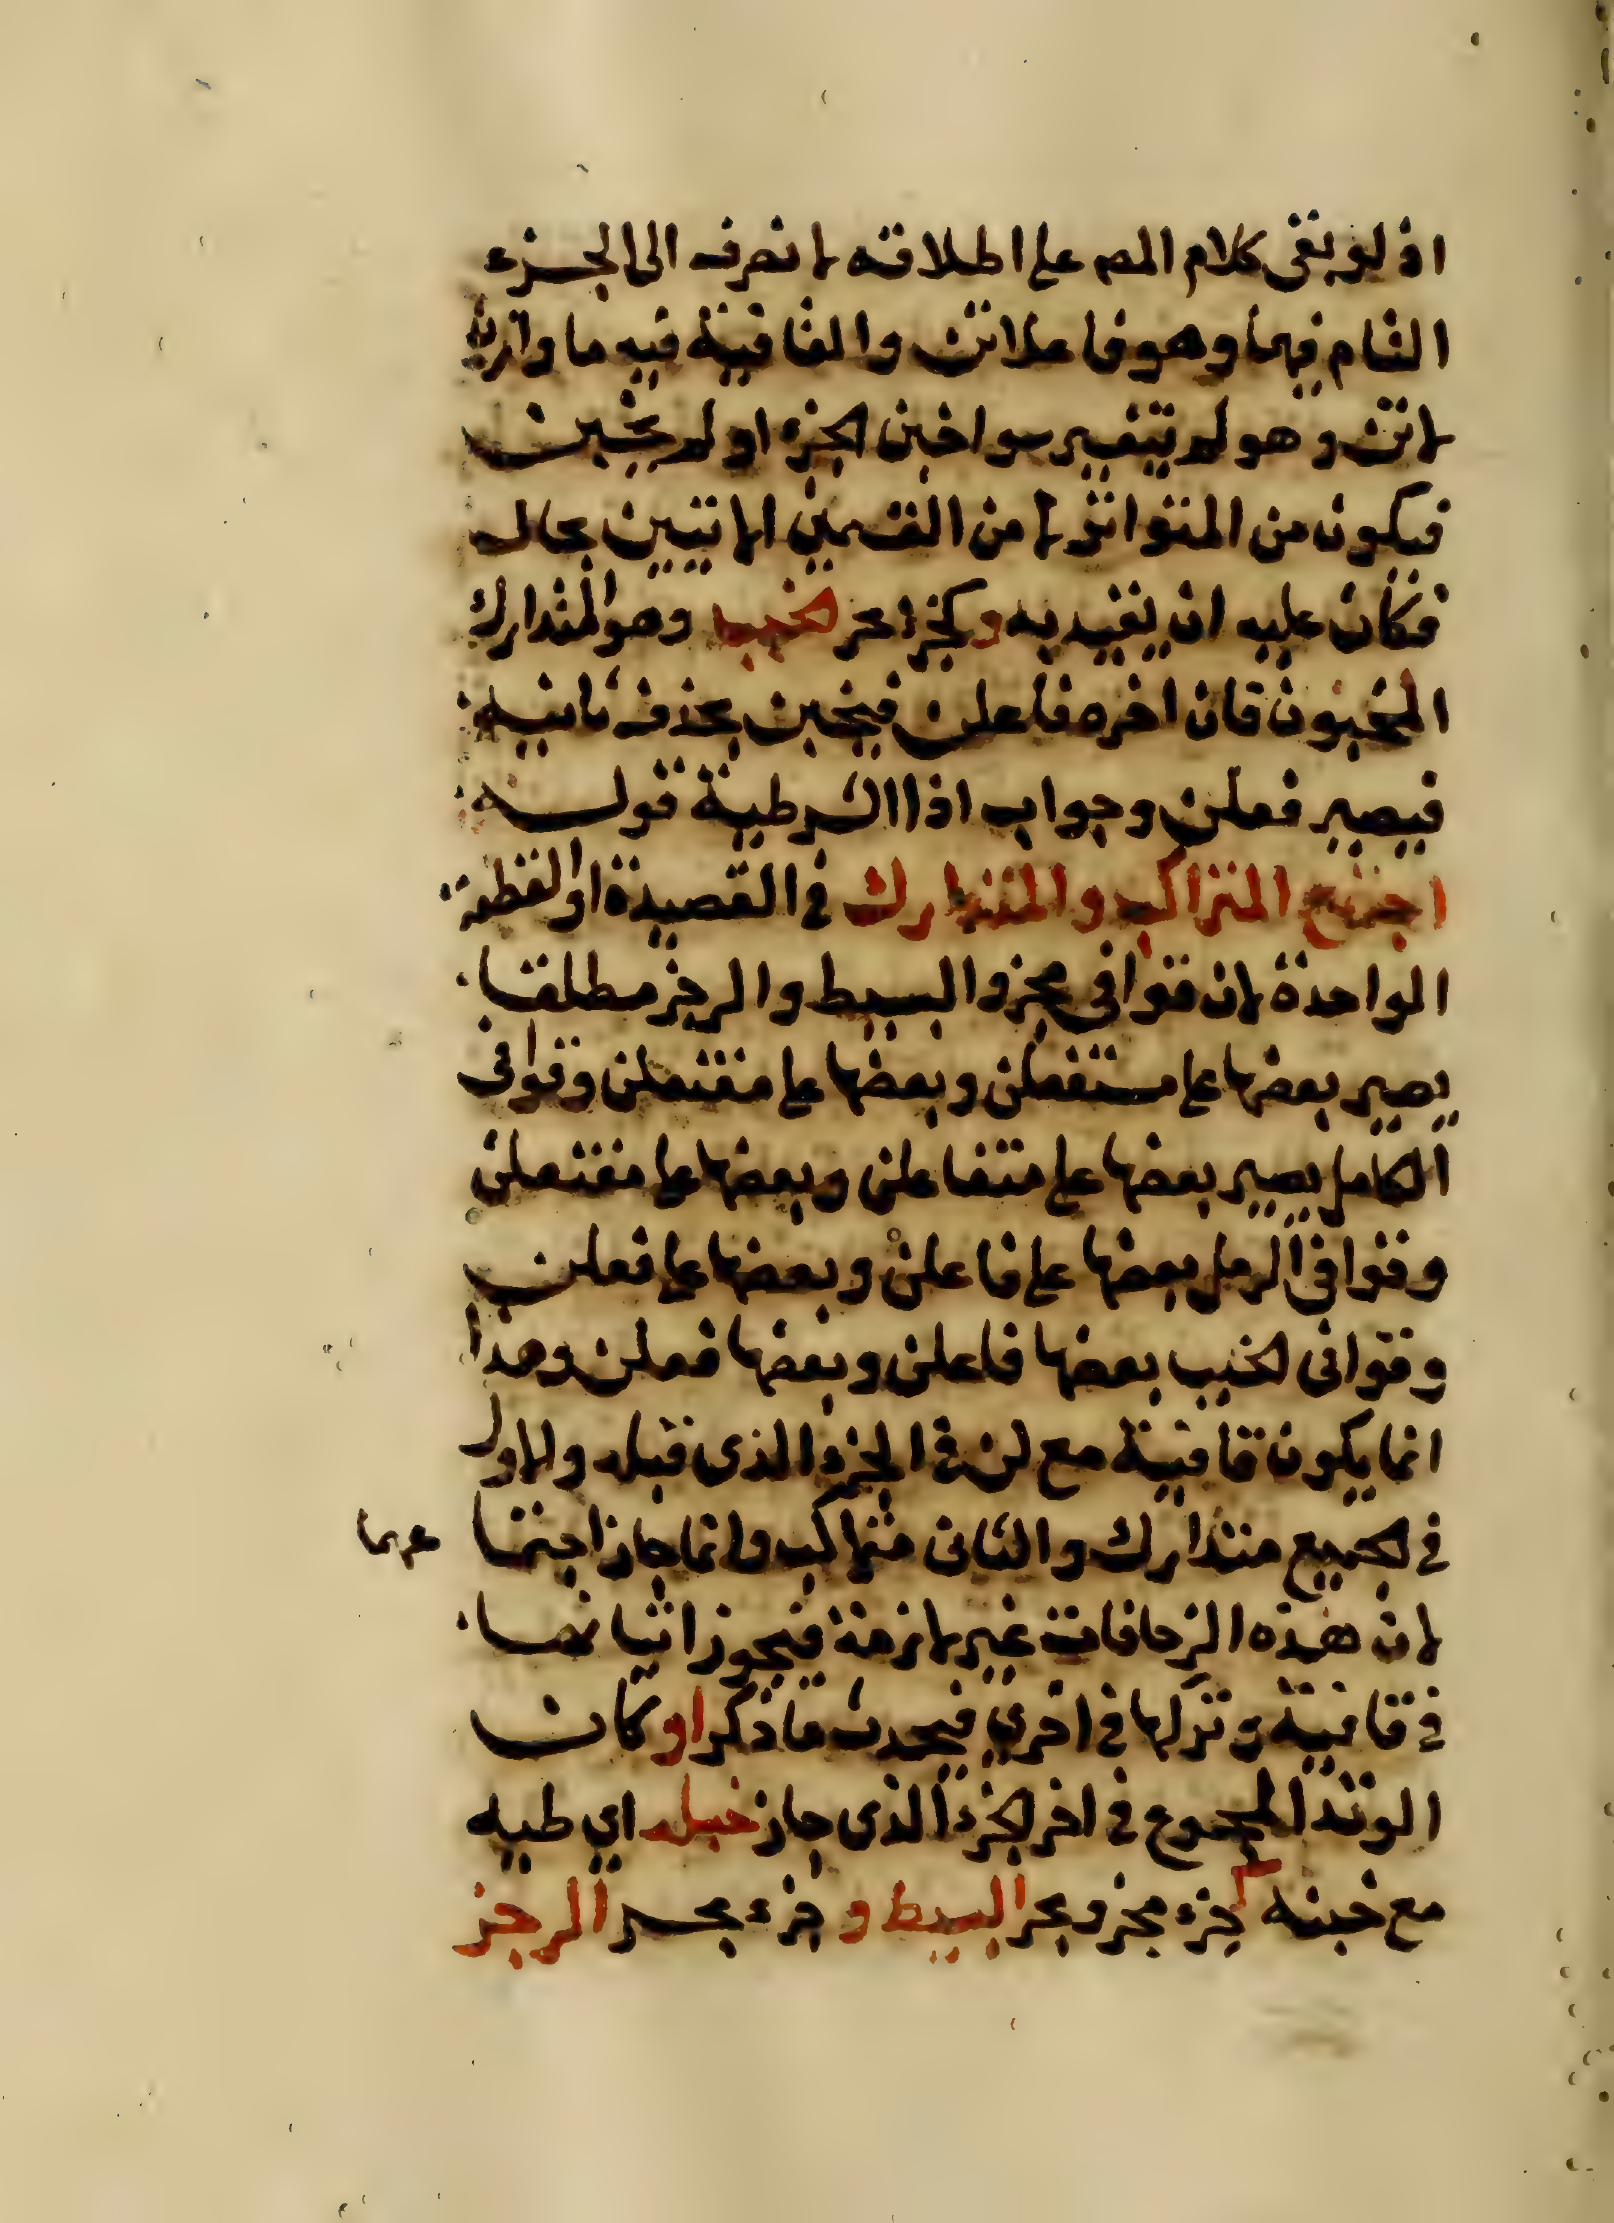 اذ لو بقى كلام المص على اطلاقه لانصرف الى الجزء
التام فيهما وهو فاعلاتن والقافية فيه ما وازن
لاتن وهو لم يتغير سوا خبن الجزء او لم يخبن
فيكون من المتواتر لا من القسمين الاتيين بحال
فكان عليه ان يقيد به وكجزء بحر الخبب وهو المتدارك
المخبون فان اخره فاعلن فيخبن بحذف ثانيه
فيصير فعلن وجواب اذا الشرطية قوله
اجتمع المتراكب والمتدارك في القصيدة او القطعة
الواحدة لان قوافي مجزو البسيط والرجز مطلقا
يصير بعضها على مستفعلن وبعضها على مفتعلن وقوافى
الكامل يصير بعضها على متفاعلن وبعضها على مفتعلن
وقوافي الرمل بعضها على فاعلن وبعضها على فعلن
وقوافى الخبب بعضها فاعلن وبعضها فعلن وهذا
انما يكون قافية مع لن في الجزء الذى قبله والاول
في الجميع متدارك والثانى متراكب وانما جاز اجتما
عهما
لان هذه الزحافات غير لازمة فيجوز اتيانها
في قافية وتركها في اخري فيحدث ما ذكر او كان
الوتد المجموع في اخر الجزء الذى جاز خبله اي طيه
مع خبنه كجزء مجزو بحر البسيط و جزء بحر الرجز